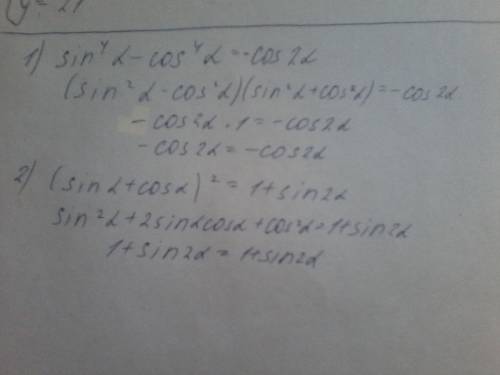 y = 21
1) sin⁴α - cos⁴α = -cos2α
(sin²α - cos²α)(sin²α + cos²α) = -cos2α
-cos2α · 1 = -cos2α
-cos2α = -cos2α
2) (sinα + cosα)² = 1 + sin2α
sin²α + 2sinαcosα + cos²α = 1 + sin2α
1 + sin2α = 1 + sin2α